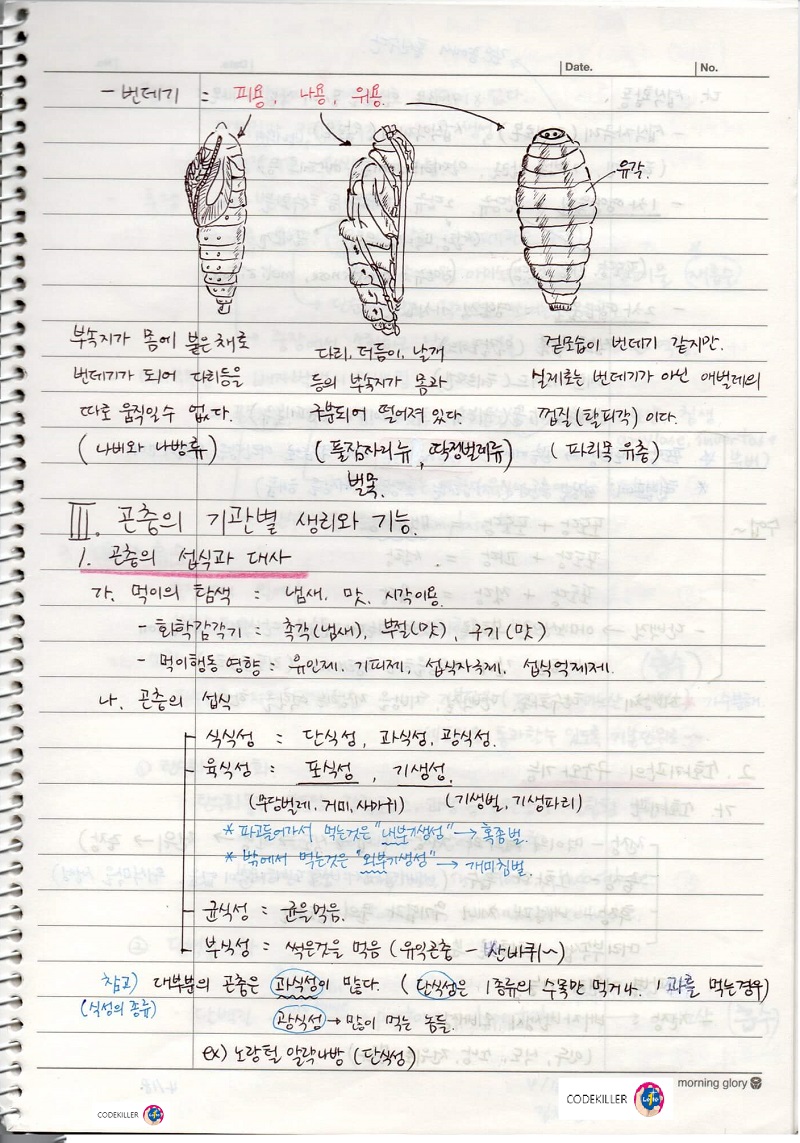 Date.
No.
- 번데기 : 피용, 나용, 위용
유각.
부속지가 몸에 붙은채로
번데기가 되어 다리등을
따로 움직일수 없다.
(나비와 나방류)
다리, 더듬이, 날개
등의 부속지가 몸과
구분되어 떨어져 있다.
(풀잠자리류, 딱정벌레류)
벌목.
겉모습이 번데기 같지만.
실제로는 번데기가 아닌 애벌레의
껍질(탈피각)이다.
(파리목 유충)
Ⅲ. 곤충의 기관별 생리와 기능.
1. 곤충의 섭식과 대사
가. 먹이의 탐색 : 냄새, 맛, 시각이용.
- 화학감각기 : 촉각(냄새), 부절(맛), 구기(맛)
- 먹이행동 영향 : 유인제, 기피제, 섭식자극제, 섭식억제제.
나. 곤충의 섭식
식식성 = 단식성, 과식성, 광식성.
육식성 = 포식성, 기생성.
(무당벌레, 거미, 사마귀) (기생벌, 기생파리)
* 파고들어가서 먹는것은 "내부기생성" → 혹좀벌.
* 밖에서 먹는것은 "외부기생성" → 개미침벌.
균식성 = 균을먹음.
부식성 = 썩은것을 먹음 (유익곤충 - 산바퀴~)
참고) 대부분의 곤충은 과식성이 많다. (단식성은 1종류의 수목만 먹거나. 1과를 먹는경우)
(식성의 종류)
광식성 → 많이 먹는 놈들.
ex) 노랑털 알락나방 (단식성)
morning glory
CODEKILLER
CODEKILLER